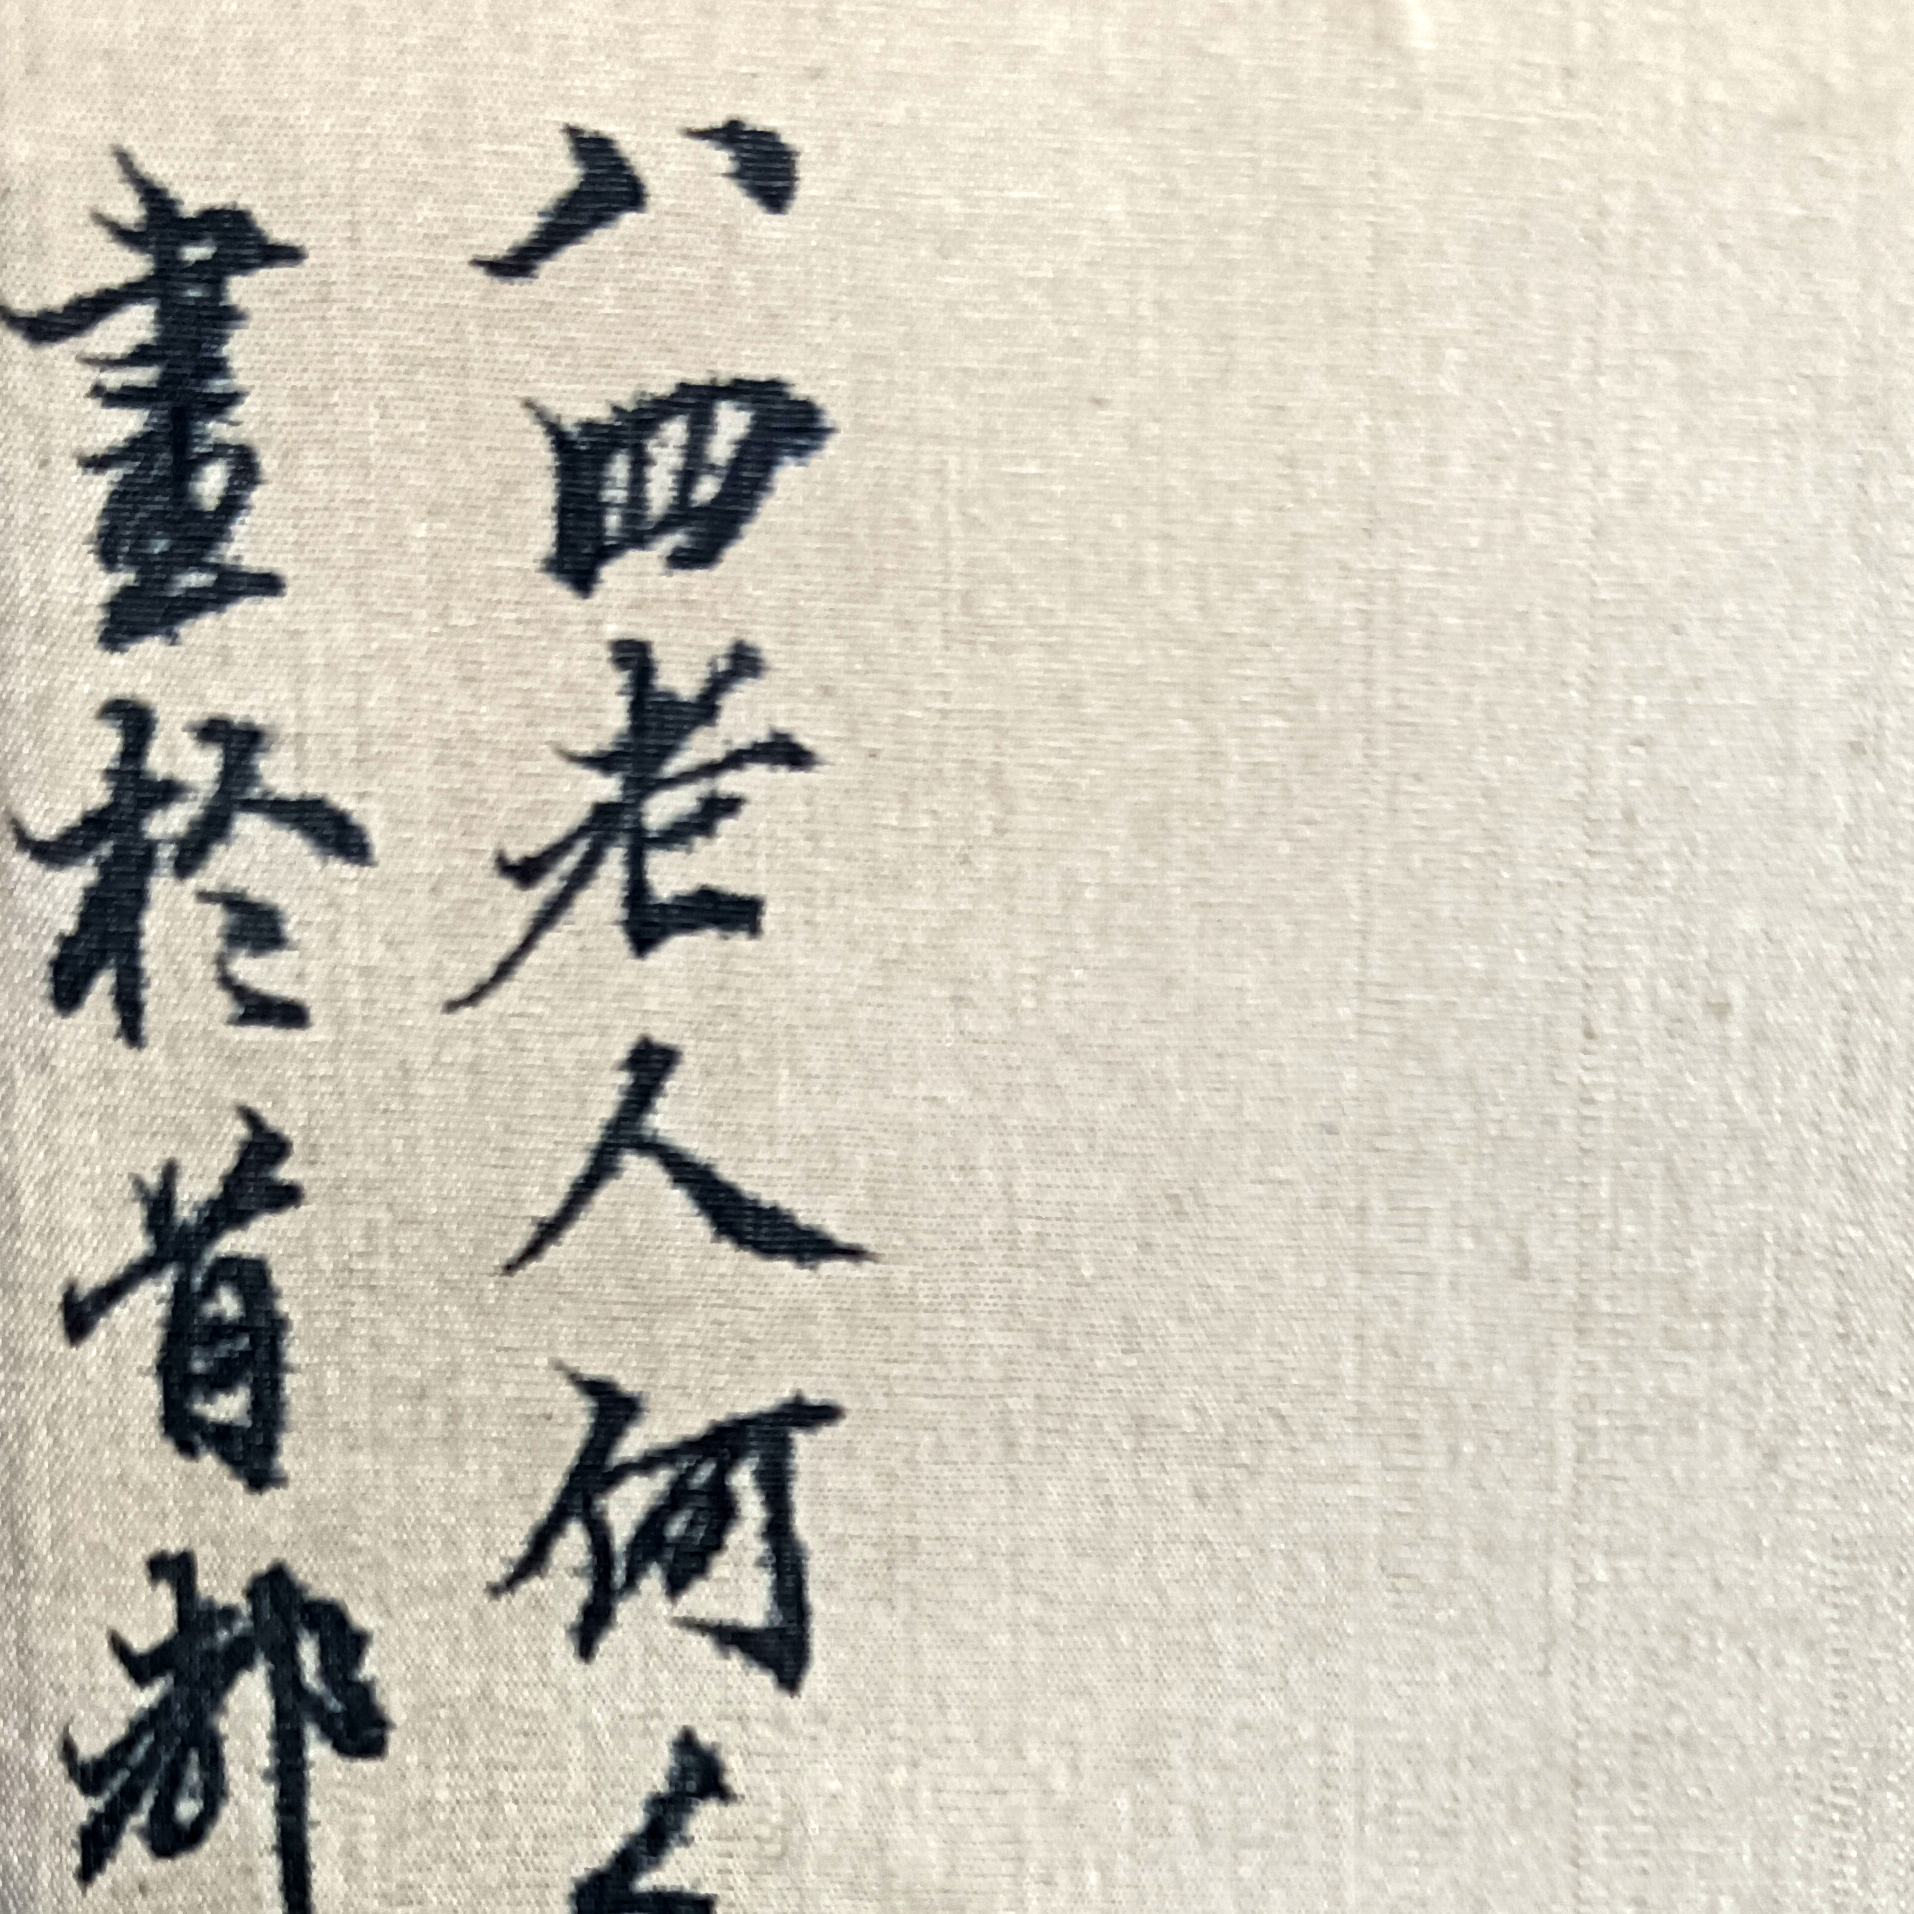 八四老人何
畫於首都